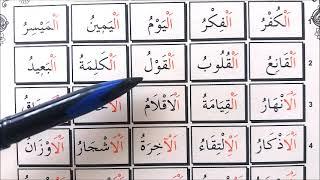 اَلْكُفْرُ اَلْفِكْرُ اَلْيَوْمُ اَلْيَمِينُ اَلْمَيْسِرُ
2 اَلْقَانِعُ اَلْقُلُوبُ اَلْقَوْلُ اَلْكَلِمَةُ اَلْبَعِيدُ
اَلْاَنْهَارُ اَلْقِيَامَةُ اَلْاَقْلَامُ
4 اَلْاَذْكَارُ اَلْاِلْتِقَاءُ اَلْاٰخِرَةُ اَلْاَشْجَارُ اَلْاَوْزَانُ